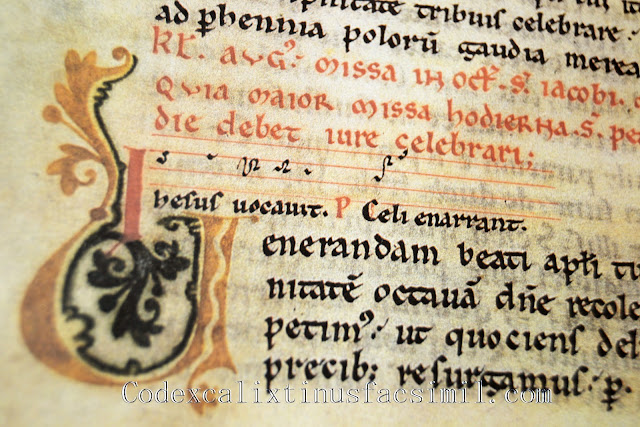 nitate tribuis celebrare·
ad phennia polorū gaudia merea
KL. AUG⁹. missa in oct̄. S. iacobi.
Quia maior missa hodierna. S. pe
die debet iure celebrari;
Ihesus uocauit. P Celi enarrant.
Uenerandam beati ap̄li
nitatē octauā dn̄e recole
petim⁹· ut quociens del
precib; resurgamus· p.
Codexcalixtinusfacsimil.com